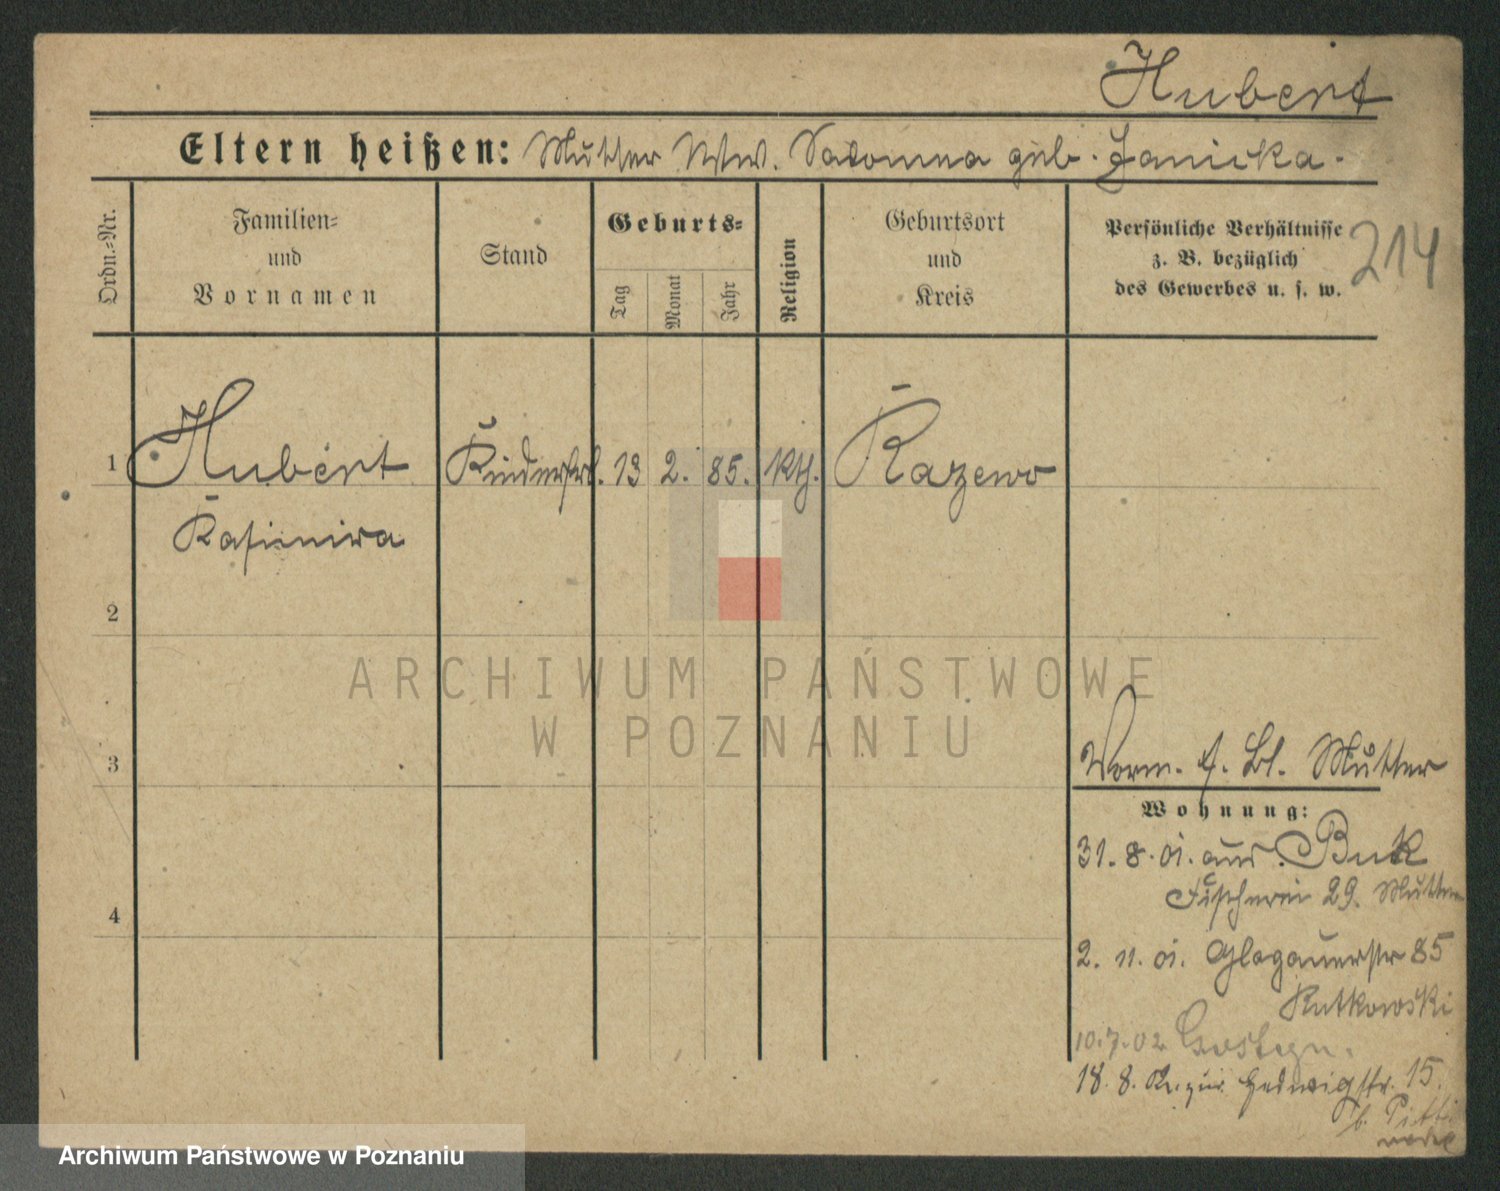 Hubert
Eltern heißen: Mutter Ww. Salomea geb. Janicka.
Ordn.=Nr.
Familien=
und
Vornamen
Stand
Geburts=
Tag
Monat
Jahr
Religion
Geburtsort
und
Kreis
Persönliche Verhältnisse
z. B. bezüglich
des Gewerbes u. s. w.
214
1 Hubert Kinderfrl. 13 2. 85. kth. Razewo
Kasimira
2
ARCHIWUM PAŃSTWOWE
W POZNANIU
3
Vorm. s. Bl. Mutter
Wohnung:
31. 8. 01. aus Buk
Fischerei 29. Mutter
4
2. 11. 01. Glogauerstr 85
Rutkowski
10.7.02 Gostyn.
18. 8. zur Hedwigstr. 15.
b.
Archiwum Państwowe w Poznaniu